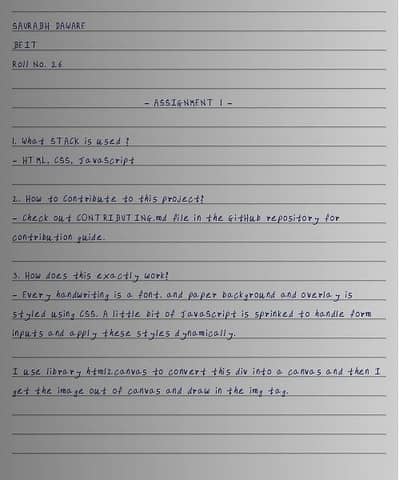 SAURABH DAWARE
BEIT
Roll No. 26
- ASSIGNMENT 1 -
1. What STACK is used ?
- HTML, CSS, JavaScript
2. How to Contribute to this project?
- Check out CONTRIBUTING.md file in the GitHub repository for
contribution guide.
3. How does this exactly work?
- Every handwriting is a font. and paper background and overlay is
styled using CSS. A little bit of JavaScript is sprinked to handle form
inputs and apply these styles dynamically.
I use library html2canvas to convert this div into a canvas and then I
get the image out of canvas and draw in the img tag.